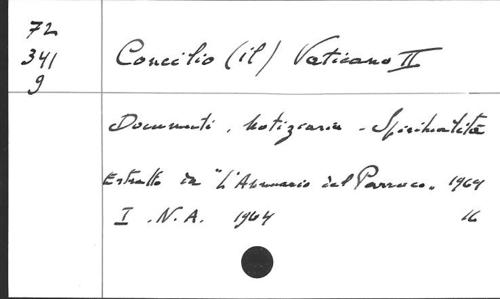 72
341
9
Concilio (il) Vaticano II
Documenti, Notiziario - Spiritualità
Estratto da "L'Annuario del Parroco" 1964
I. N.A. 1964 16